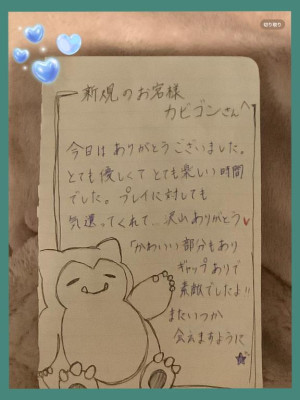 切り取り
新規のお客様
カビゴンさんへ
今日はありがとうございました。
とても優しくてとても楽しい時間
でした。プレイに対しても
気遣ってくれて…沢山ありがとう♥
「かわいい部分もあり
ギャップありで
素敵でしたよ!!
またいつか
会えますように